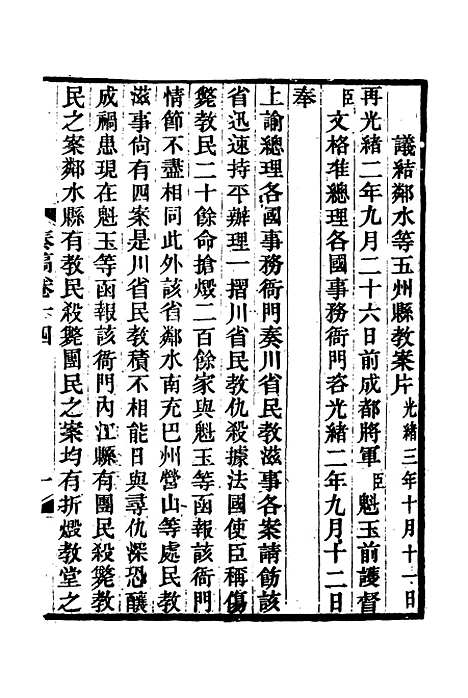 議結鄰水等五州縣教案片光緒三年十月十一日
再光緒二年九月二十六日前成都將軍臣魁玉前護督
臣文格准總理各國事務衙門咨光緒二年九月十二日
奉
上諭總理各國事務衙門奏川省民教滋事各案請飭該
省迅速持平辦理一摺川省民教仇殺據法國使臣稱傷
斃教民二十餘命搶燬二百餘家與魁玉等函報該衙門
情節不盡相同此外該省鄰水南充巴州營山等處民教
滋事尙有四案是川省民教積不相能日與尋仇深恐釀
成禍患現在魁玉等函報該衙門內江縣有團民殺斃教
民之案鄰水縣有教民殺斃團民之案均有折燬教堂之
奏稿卷十四
一